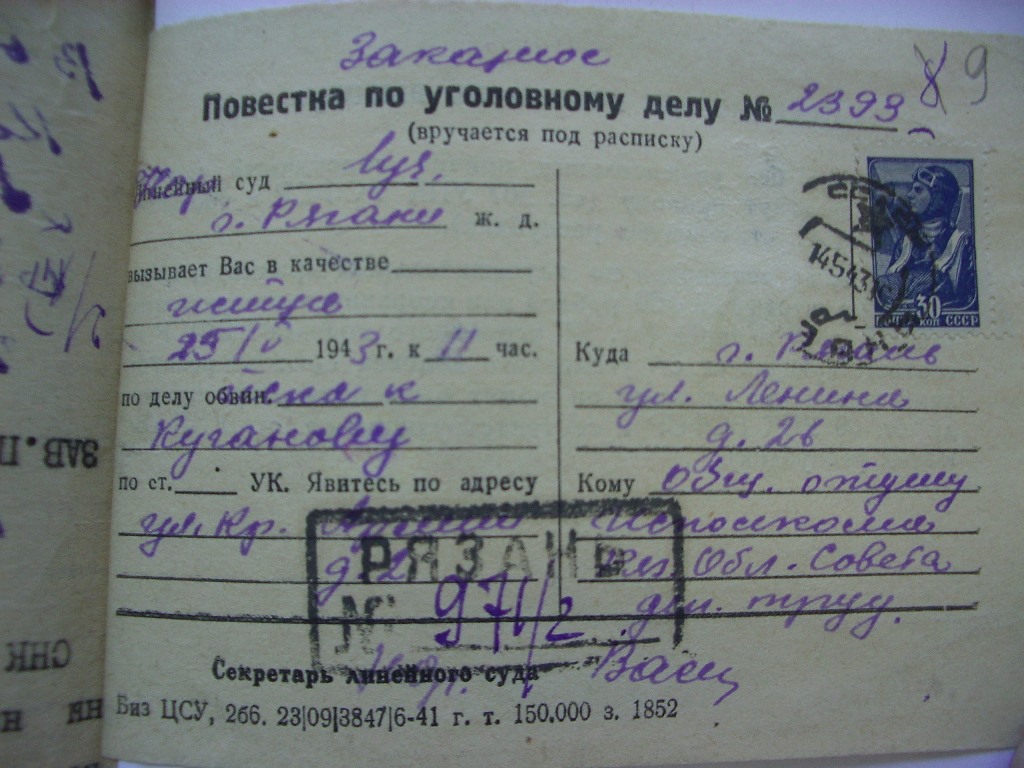 Заказное
Повестка по уголовному делу № 2393
8 9
(вручается под расписку)
Линейный суд
г. Рязани ж. д.
вызывает Вас в качестве
истца
25/IV 1943 г. к 11 час.
по делу обвин. иска к
Кугановиц
по ст. УК. Явитесь по адресу
ул. Кр. Армии
д. 2
Секретарь линейного суда
Биз ЦСУ, 266. 23|09|3847|6-41 г. т. 150.000 з. 1852
30
ПОЧТА СССР
14543
Куда г. Рязань
ул. Ленина
д. 26
Кому общ. отделу
исполкома
Обл. Совета
деп. труд.
РЯЗАНЬ
№ 971/2
ЗАВ. П
СНК